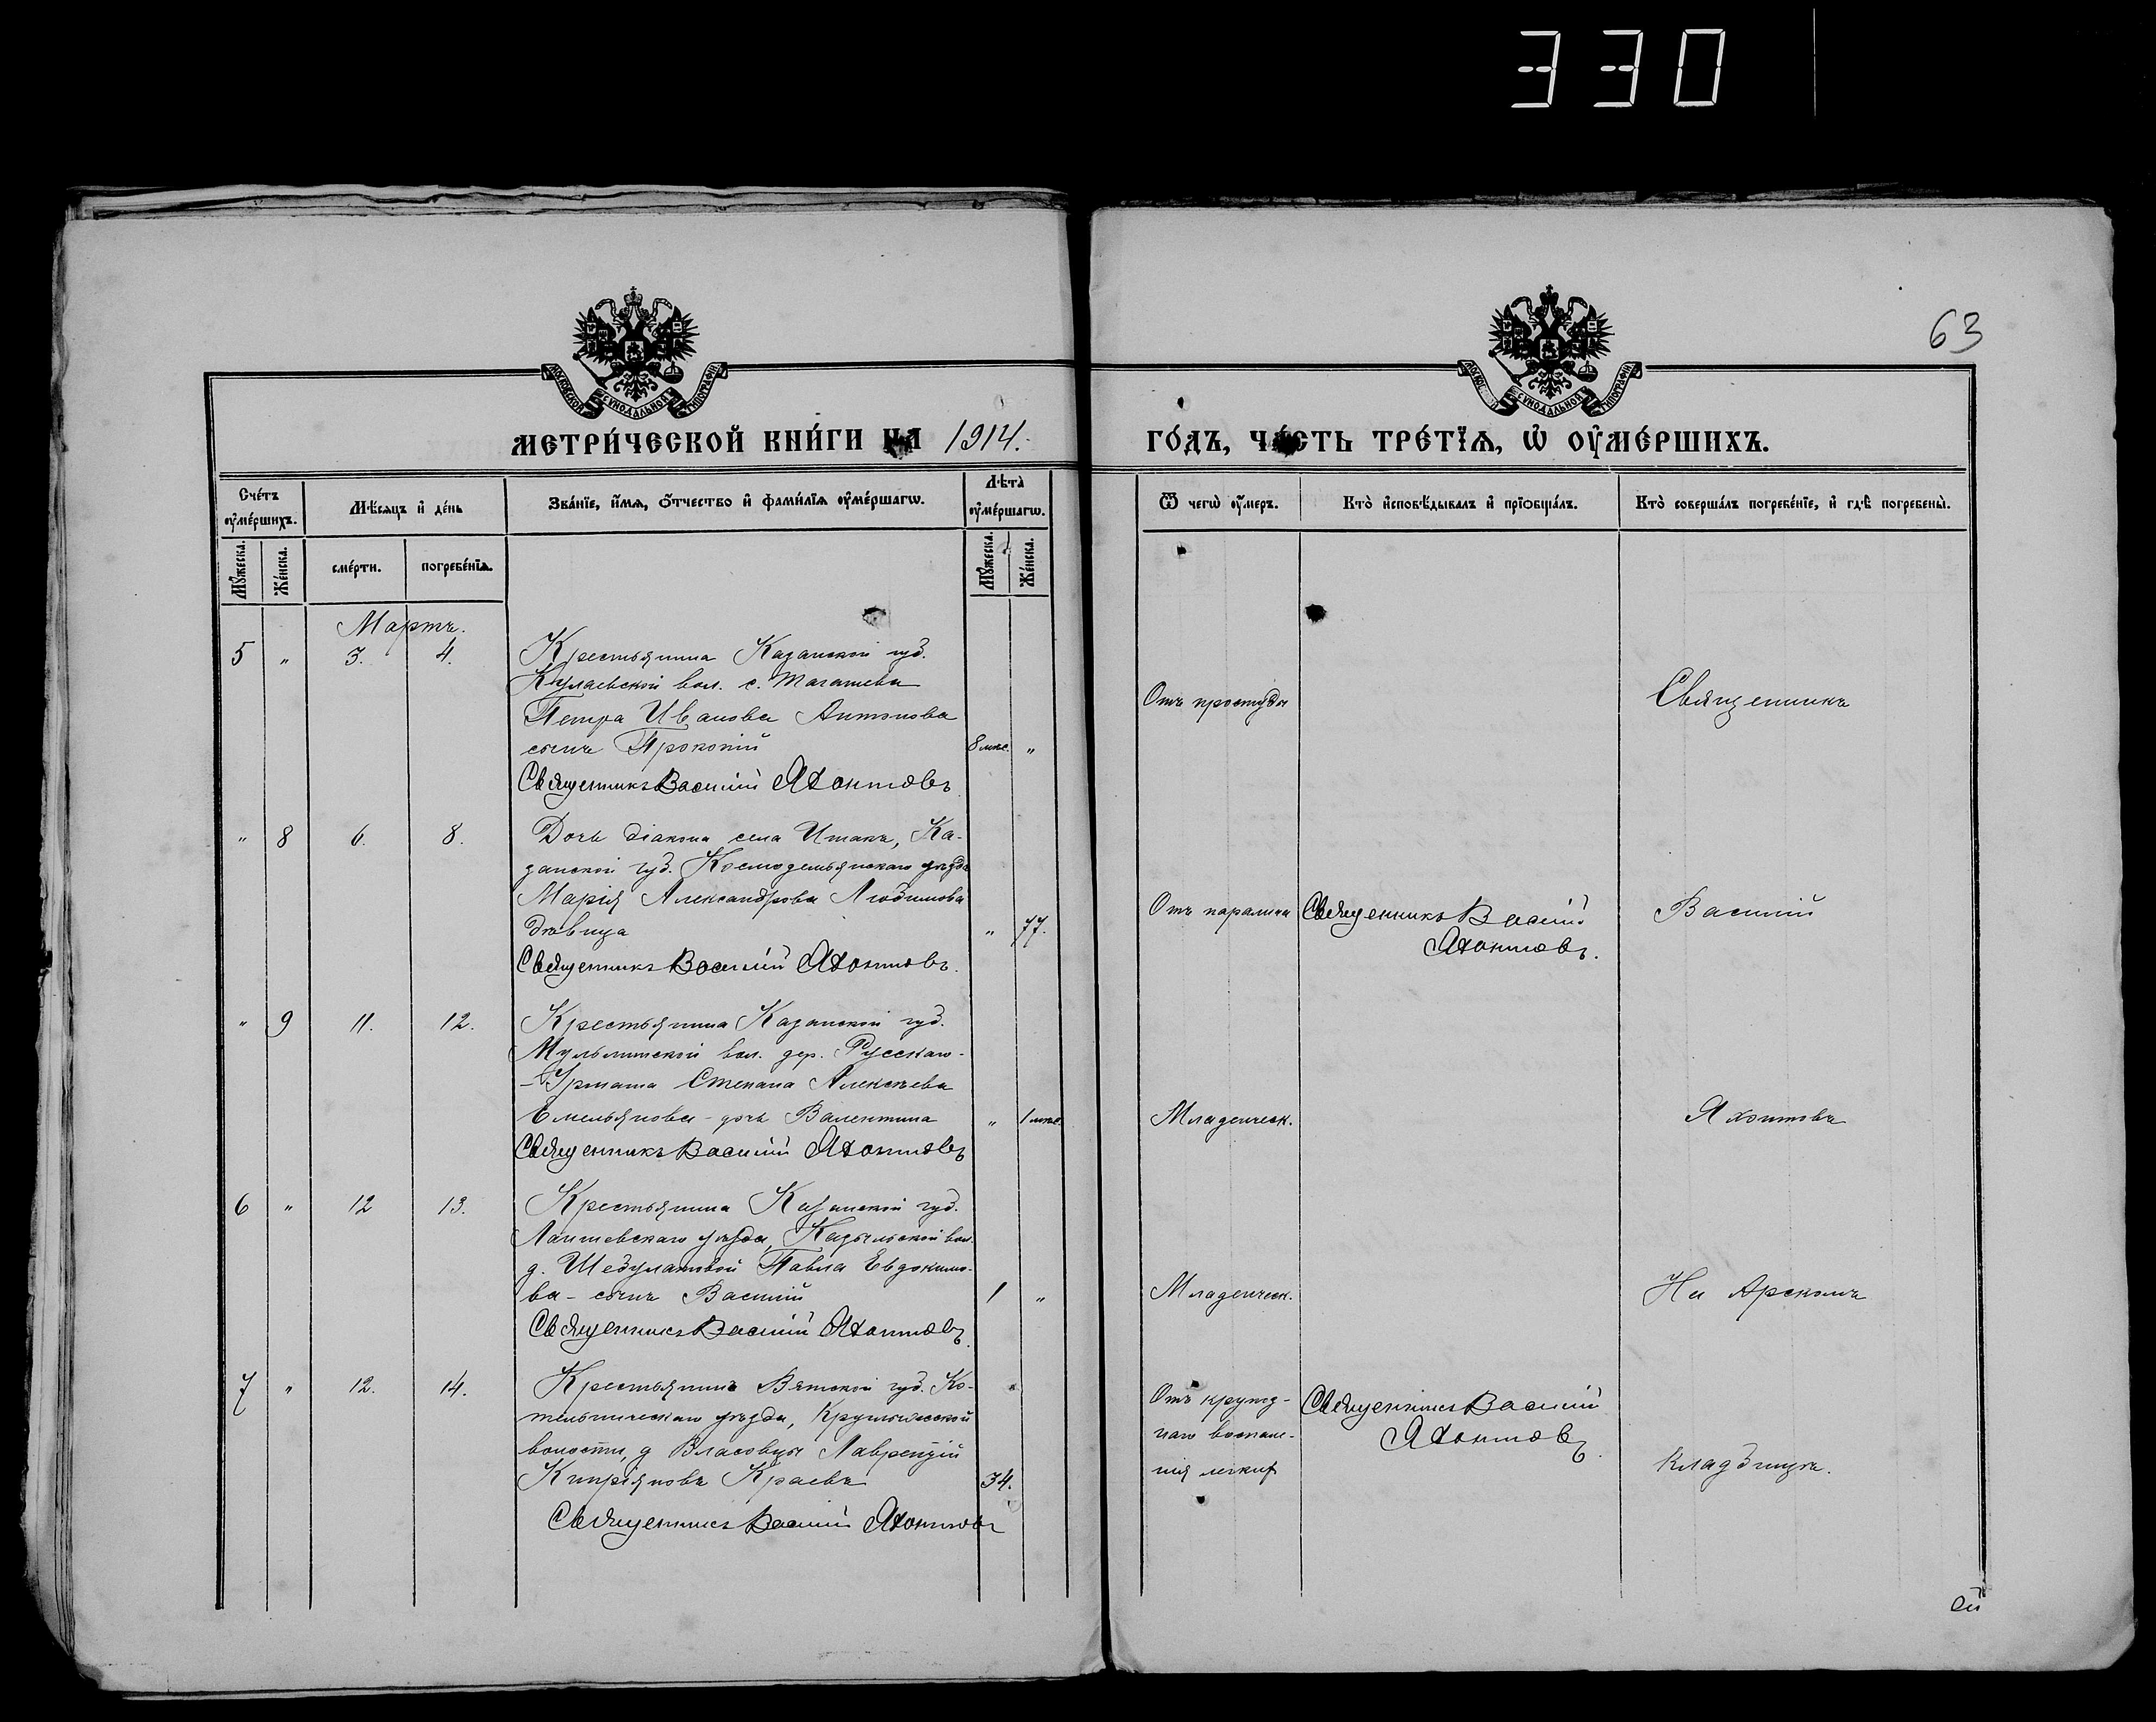 330
63
МОСКОВСКОЙ СѴНОДАЛЬНОЙ ТИПОГРАФІИ
МОСКОВСКОЙ СѴНОДАЛЬНОЙ ТИПОГРАФІИ
МЕТРИ́ЧЕСКОЙ КНИ́ГИ НА 1914.
ГО́ДЪ, ЧА́СТЬ ТРЕ́ТЇѦ, Ѡ҆ ОУ҆МЕ́РШИХЪ.
Сче́тъ оу҆ме́ршихъ.
Мꙋ́жеска.
Же́нска.
Мѣ́сѧцъ и҆ де́нь
сме́рти.
погребе́нїѧ.
Зва́нїе, и҆́мѧ, ѻ҆́тчество и҆ фами́лїѧ оу҆ме́ршагѡ.
Лѣ̀та оу҆ме́ршагѡ.
Мꙋ́жеска.
Же́нска.
Ѿ чегѡ̀ оу҆́меръ.
Кто̀ и҆сповѣ́дывалъ и҆ прїѡбща́лъ.
Кто̀ соверша́лъ погребе́нїе, и҆ гдѣ̀ погребены̀.
Мартъ.
5 " 3. 4.
Крестьянина Казанской губ.
Кулаевской вол. с. Тагашева
Петра Иванова Антонова
сынъ Прокопій 8 мѣс. "
Священникъ Василій Яхонтовъ
Отъ простуды
Священникъ
" 8 6. 8.
Дочь діакона села Ишакъ, Ка-
занской губ. Космодемьянскаго уѣзда
Марія Александрова Любимова
дѣвица " 77.
Священникъ Василій Яхонтовъ.
Отъ паралича
Священникъ Василій
Яхонтовъ.
Василій
" 9 11. 12.
Крестьянина Казанской губ.
Мульминской вол. дер. Русскаго-
-Урмата Степана Алексѣева
Емельянова - дочь Валентина " 1 мѣс.
Священникъ Василій Яхонтовъ
Младенческ.
Яхонтовъ
6 " 12 13.
Крестьянина Казанской губ.
Лаишевскаго уѣзда, Кадыльской вол.
д. Шебулатовой Павла Евдокимо-
ва - сынъ Василій 1 "
Священникъ Василій Яхонтовъ.
Младенческ.
На Арскомъ
7 " 12. 14.
Крестьянинъ Вятской губ. Ко-
тельническаго уѣзда,
волости, д Власовцы Лаврентій
Кипріяновъ Краевъ 34.
Священникъ Василій Яхонтовъ
Отъ крупоз-
наго воспале-
нія легких
Священникъ Василій
Яхонтовъ.
кладбищѣ.